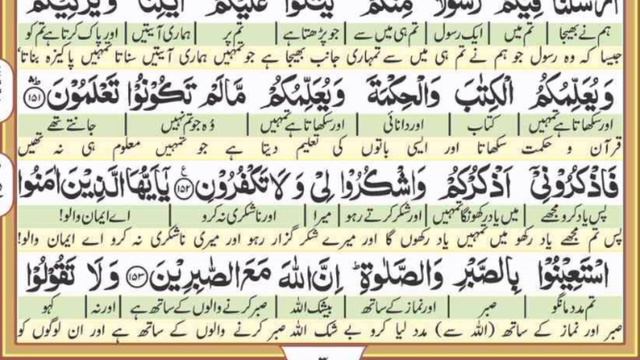 اَرْسَلْنَا فِيْكُمْ رَسُوْلًا مِّنْكُمْ يَتْلُوْا عَلَيْكُمْ اٰيٰتِنَا وَيُزَكِّيْكُمْ
ہم نے بھیجا | تم میں | ایک رسول | تم ہی میں سے | جو پڑھتا ہے | تم پر | ہماری آیتیں | اور پاک کرتا ہے تم کو
جیسا کہ وہ رسول جو ہم نے تم ہی میں سے تمہاری جانب بھیجا ہے جو تمہیں ہماری آیتیں سناتا تمہیں پاکیزہ بناتا،
وَيُعَلِّمُكُمُ الْكِتٰبَ وَالْحِكْمَةَ وَيُعَلِّمُكُمْ مَّالَمْ تَكُوْنُوْا تَعْلَمُوْنَ ۝١٥١
اور سکھاتا ہے تمہیں | کتاب | اور دانائی | اور سکھاتا ہے تمہیں | وہ جو تم نہیں | جانتے تھے
قرآن و حکمت سکھاتا اور ایسی باتوں کی تعلیم دیتا ہے جو تمہیں معلوم ہی نہ تھیں
فَاذْكُرُوْنِيْٓ اَذْكُرْكُمْ وَاشْكُرُوْا لِيْ وَلَا تَكْفُرُوْنِ ۝١٥٢ يٰٓاَيُّهَا الَّذِيْنَ اٰمَنُوا
پس یاد کرو مجھے | میں یاد رکھونگا تمہیں | اور شکر کرتے رہو | میرا | اور ناشکری نہ کرو | اے ایمان والو!
پس تم مجھے یاد رکھو میں تمہیں یاد رکھوں گا اور میرے شکر گزار رہو اور میری ناشکری نہ کرو اے ایمان والو!
اسْتَعِيْنُوْا بِالصَّبْرِ وَالصَّلٰوةِ ؕ اِنَّ اللّٰهَ مَعَ الصّٰبِرِيْنَ ۝١٥٣ وَلَا تَقُوْلُوْا
تم مدد مانگو | صبر | اور نماز کے ساتھ | بیشک اللہ | صبر کرنے والوں کے ساتھ ہے | اور نہ | کہو
صبر اور نماز کے ساتھ (اللہ سے) مدد لیا کرو بے شک اللہ صبر کرنے والوں کے ساتھ ہے اور ان لوگوں کو